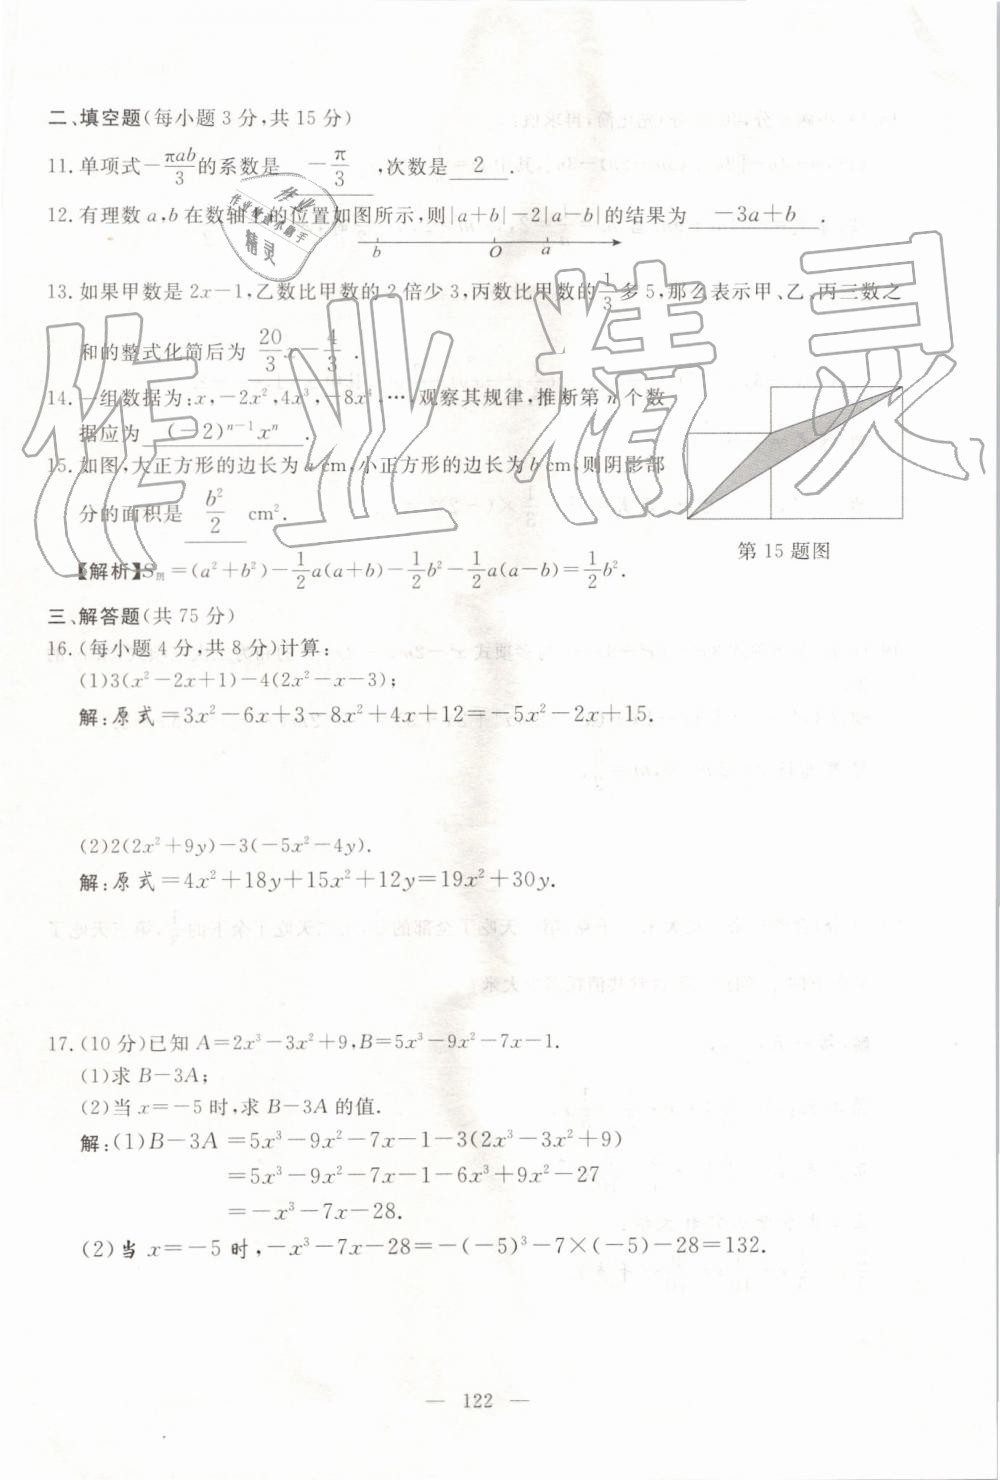 二、填空题(每小题3分,共15分)
11.单项式-πab/3的系数是 -π/3 ,次数是 2 .
12.有理数a,b在数轴上的位置如图所示,则|a+b|-2|a-b|的结果为 -3a+b .
b O a
13.如果甲数是2x-1,乙数比甲数的2倍少3,丙数比甲数的1/3多5,那么表示甲、乙、丙三数之
和的整式化简后为 20/3x-4/3 .
14.一组数据为:x,-2x²,4x³,-8x⁴,…,观察其规律,推断第n个数
据应为 (-2)ⁿ⁻¹xⁿ .
15.如图,大正方形的边长为a cm,小正方形的边长为b cm,则阴影部
分的面积是 b²/2 cm².
第15题图
【解析】S阴=(a²+b²)-1/2a(a+b)-1/2b²-1/2a(a-b)=1/2b².
三、解答题(共75分)
16.(每小题4分,共8分)计算:
(1)3(x²-2x+1)-4(2x²-x-3);
解:原式=3x²-6x+3-8x²+4x+12=-5x²-2x+15.
(2)2(2x²+9y)-3(-5x²-4y).
解:原式=4x²+18y+15x²+12y=19x²+30y.
17.(10分)已知A=2x³-3x²+9,B=5x³-9x²-7x-1.
(1)求B-3A;
(2)当x=-5时,求B-3A的值.
解:(1)B-3A=5x³-9x²-7x-1-3(2x³-3x²+9)
=5x³-9x²-7x-1-6x³+9x²-27
=-x³-7x-28.
(2)当x=-5时,-x³-7x-28=-(-5)³-7×(-5)-28=132.
— 122 —
作业精灵